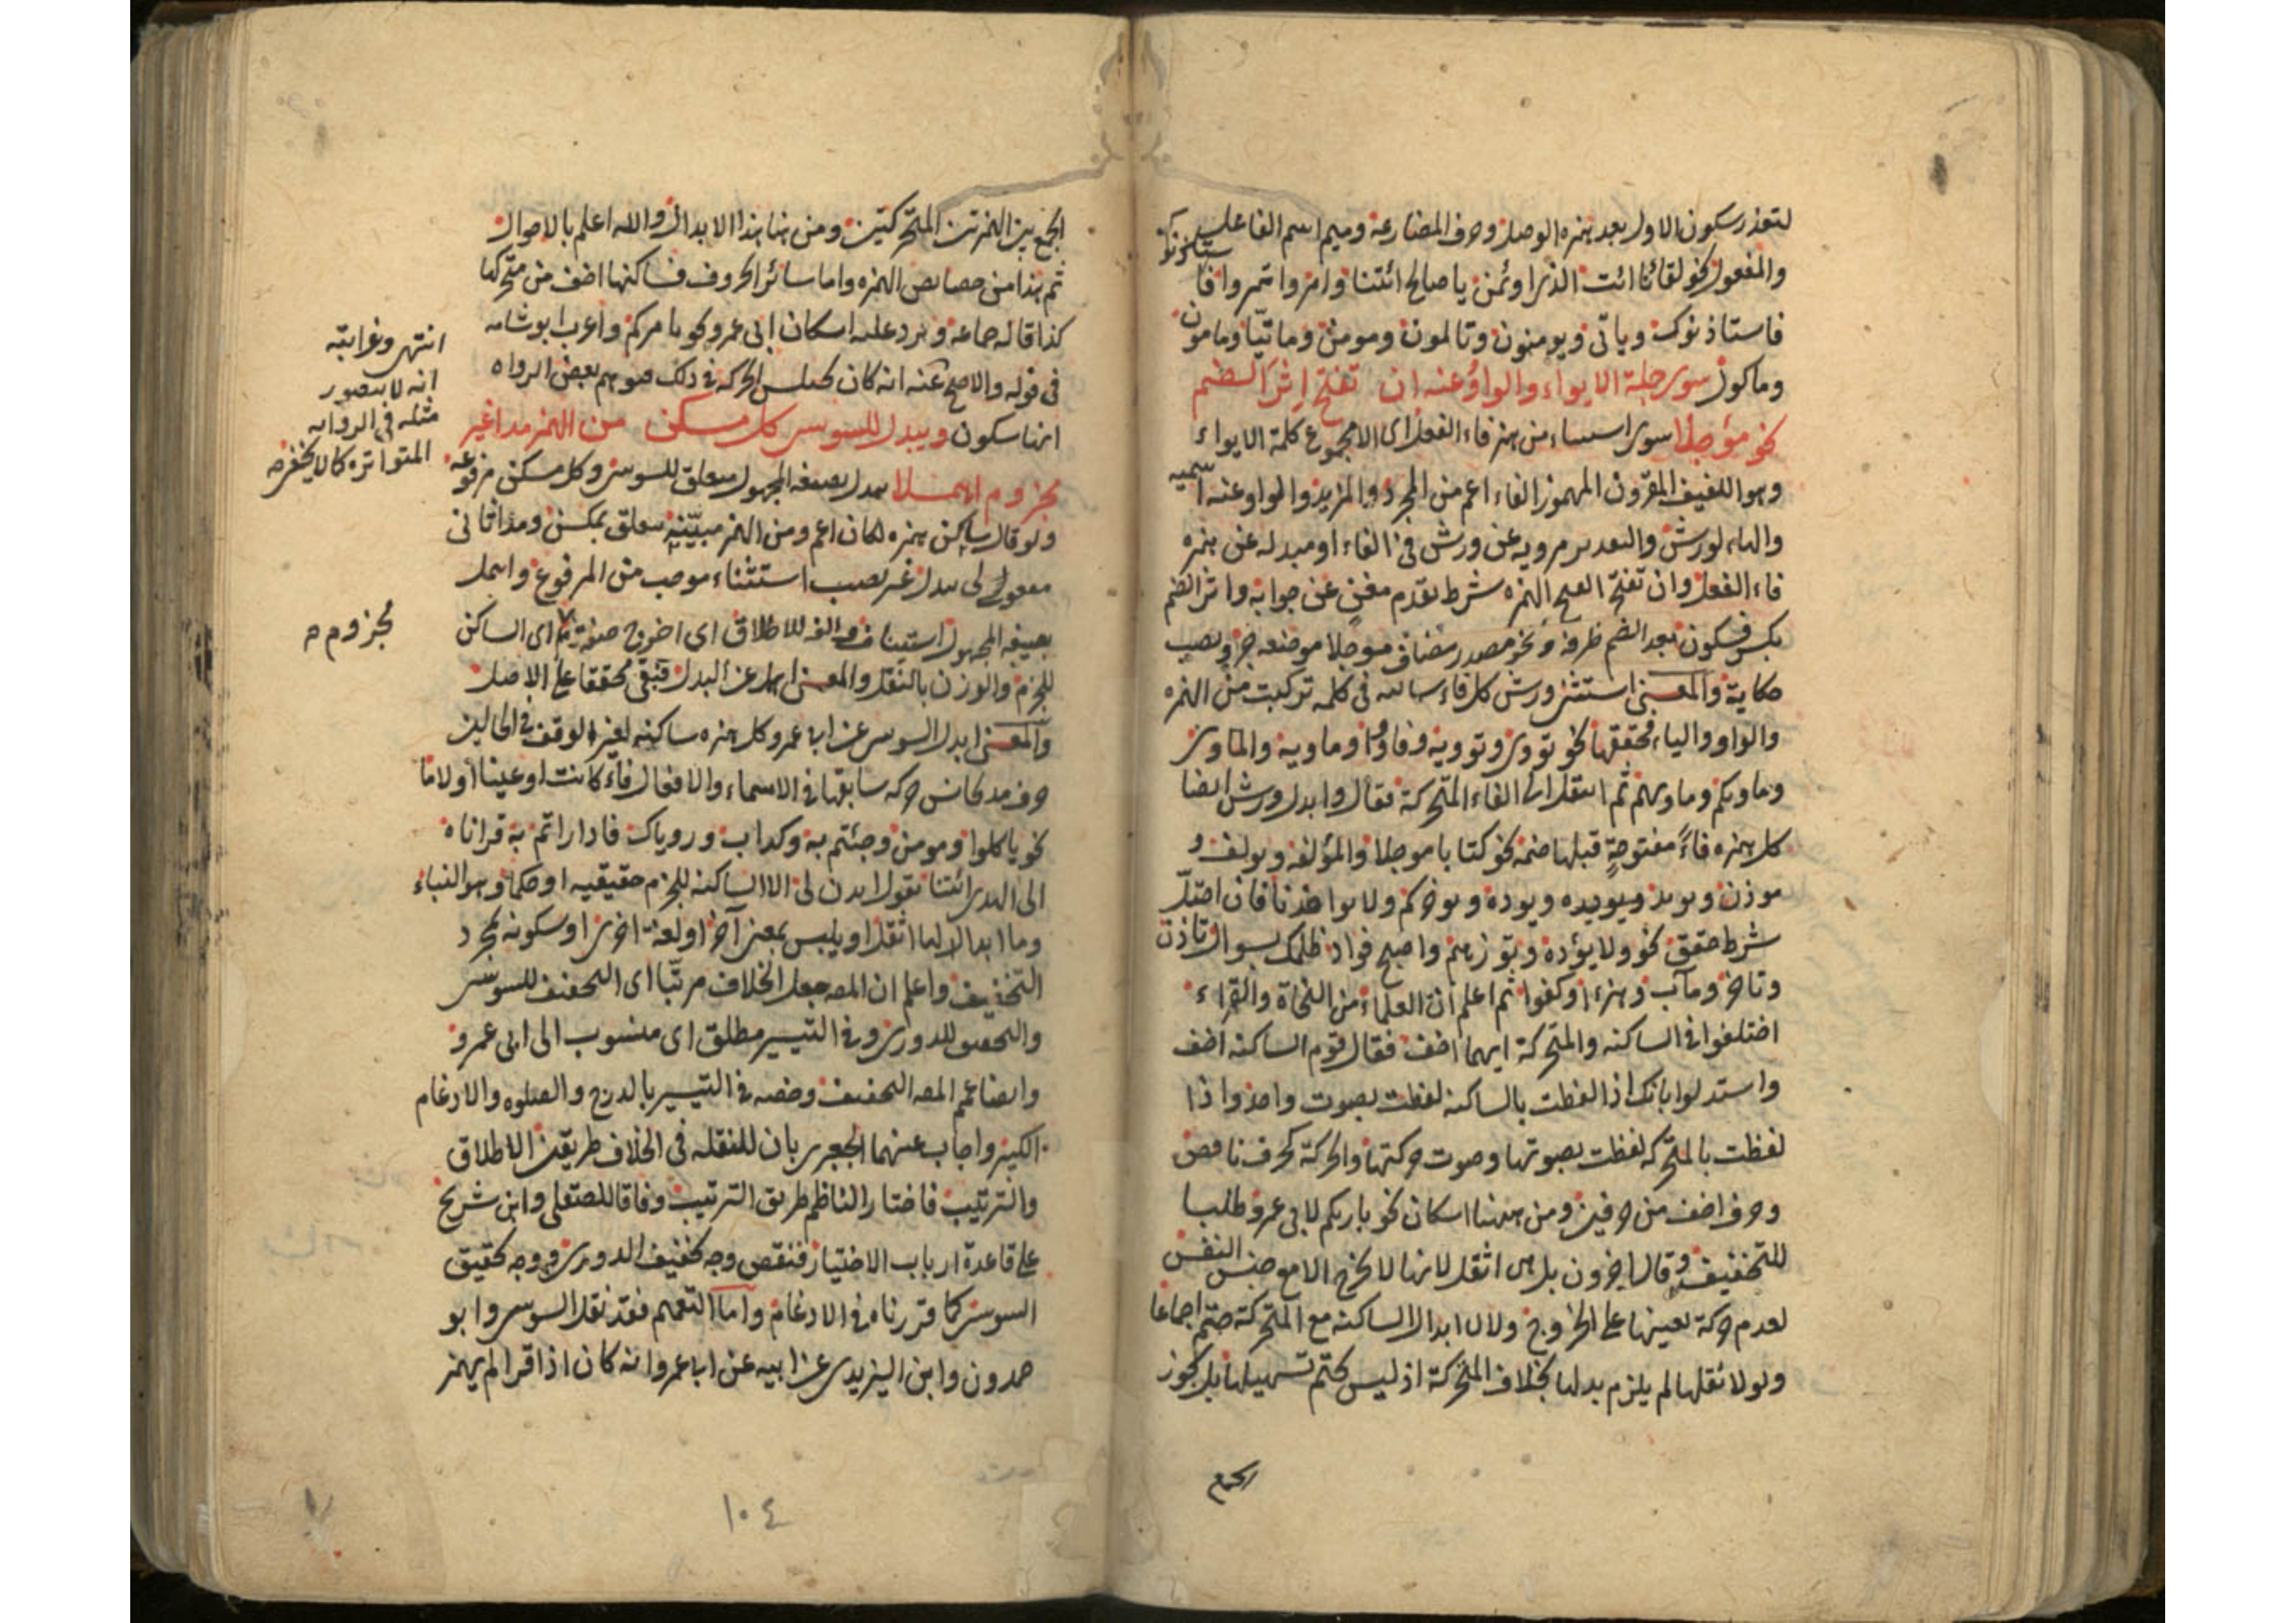 لتعذر سكون الاول بعد همزه الوصل وحرف المضارعة وميم اسم الفاعل
والمفعول نحو لقائنا ائت الذى اوتمن يا صالح ائتنا وامروا تمروا فا
فاستاذنوك وياتى ويومنون وتالمون ومومن وماتيّا ومامون
وماكول سوى جملة الايواء والواو عنه ان تفتح اثر الضم
نحو مؤجلا سوى استثناء من همز فاء الفعل اى الا مجموع كلمة الايواء
وهو اللفيف المقرون المهموز الفاء اعم من المجرد والمزيد والواو عنه اسميه
والهاء لورش والتقدير مرويه عن ورش فى الفاء او مبدله عن همزه
فاء الفعل وان تفتح الهمزه شرط تقدم مغنٍ عن جوابه واثر الضم
بكسر فسكون بعد الضم ظرفه ونحو مصدر مضاف موجلا موضعه جر ونصب
حكاية والمعنى استثنى ورش كل فاء ساكنه فى كلمه تركبت من الهمزه
والواو والياء فحققها نحو تووى وتوويه وفاووا وماويه والماوى
وماويكم وماويهم ثم انتقل الى الفاء المتحركة فقال وابدل ورش ايضا
كل همزه فاءً مفتوحةٍ قبلها ضمه نحو كتابا موجلا والمؤلفه ويولف و
موذن ويويد ويويده ويوده ويوخركم ولا تواخذنا فان اختلّ
شرط حقق نحو ولا يؤده وتوزهم واصبح فواد ظلمك بسوال تاذن
وتاخر ومآب وهزءا وكفوا ثم اعلم ان العلماء من النحاة والقراء
اختلفوا فى الساكنه والمتحركة ايهما اخف فقال قوم الساكنه اخف
واستدلوا بانك اذا لفظت بالساكنه لفظت بصوت واحد واذا
لفظت بالمتحركه لفظت بصوتها وصوت حركتها والحركة كحرف ناقص
وحرف اخف من حرفين ومن ههنا اسكان نحو باريكم لابى عمرو طلبا
للتخفيف وقال اخرون بل هى اثقل لانها لا تخرج الا مع حبس النفس
لعدم حركة تعينها على الخروج ولان ابدال الساكنه مع المتحركة حتم اجماعا
ولولا ثقلها لم يلزم بدلها بخلاف المتحركة اذ ليس تحتم تسهيلها بل يجوز
الجمع
الجمع بين الهمزتين المتحركتين ومن هنا هذا الابدال والله اعلم بالاحوال
ثم هذا من خصايص الهمزه واما سائر الحروف فساكنها اخف من متحركها
كذا قاله جماعه ويرد عليه اسكان ابى عمرو نحو يامركم واعرب ابو شامه
فى قوله والاصح عنه انه كان يختلس الحركه فى ذلك فتوهم بعض الرواه
انها سكون ويبدل للسوسى كل مسكن من الهمز مدا غير
مجزوم اهملا يبدل بصيغه المجهول متعلق للسوسى وكل مسكن مرفوعه
ولو قال ساكن همزه لكان اعم ومن الهمز مبيّنه متعلق بمسكن ومدا ثانى
مفعولى يبدل غير نصب استثناء موجب من المرفوع واهمل
بصيغه المجهول استيناف والفه للاطلاق اى اخرج صفة اى الساكن
للجزم والوزن بالنقل والمعنى اهمل عن البدل فبقى محققا على الاصل
والمعنى ابدل السوسى عن ابى عمرو كل همزه ساكنه لغير الوقف فى الحالين
حرف مد يجانس حركه سابقها فى الاسماء والافعال فاء كانت او عينا او لاما
نحو ياكلوا ومومن وجئتم به وكداب وروياك فاداراتم به قراناه
الى الهدى ائتنا يقول ايذن لى الا الساكنه للجزم حقيقيه او حكما وهو البناء
وما ابدالها اثقل او يلبس بمعنى آخر او لغة اخرى او سكونه مجرد
التخفيف واعلم ان المصـ جعل الخلاف مرتّبا اى التخفيف للسوسى
والتحقيق للدورى وفى التيسير مطلق اى منسوب الى ابى عمرو
وايضا عمم المصـ التخفيف وخصه فى التيسير بالدرج والصلوه والادغام
الكبير واجاب عنهما الجعبرى بان للنقله فى الخلاف طريقين الاطلاق
والترتيب فاختار الناظم طريق الترتيب وفاقا للصقلى وابن شريح
على قاعدة ارباب الاختيار فنقص وجه تخفيف الدورى ووجه تحقيق
السوسى كما قررناه فى الادغام واما التعميم فقد نقل السوسى وابو
حمدون وابن اليزيدى عن ابيه عن ابى عمرو انه كان اذا قرا لم يهمز
انتهى وغرابته
انه لا يتصور
مثله فى الروايه
المتواتره كما لا يخفى
مجزوم م
١٠٤